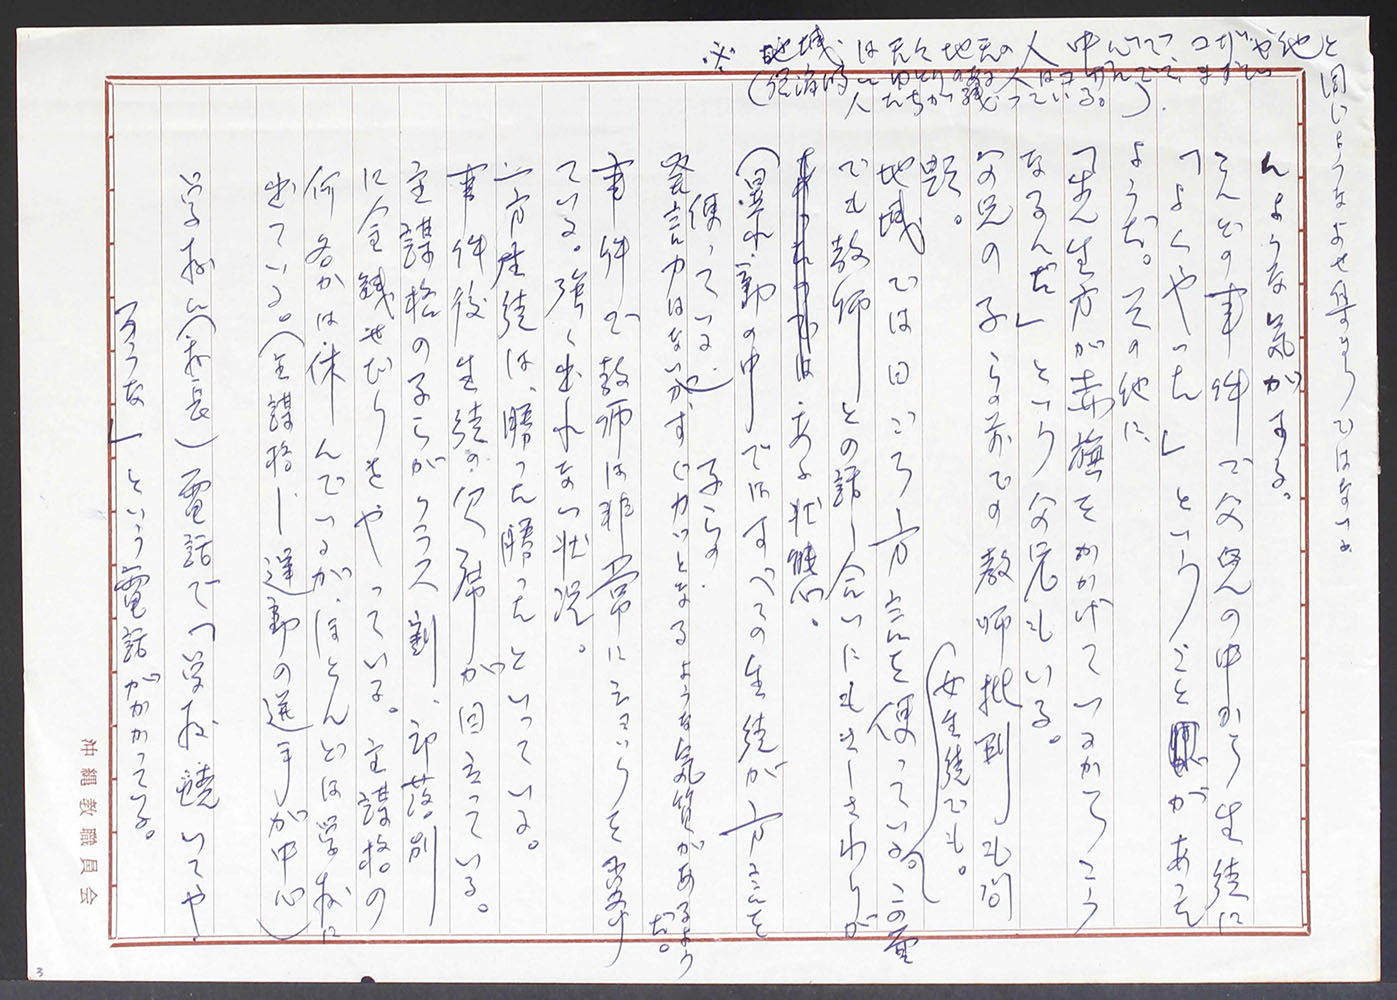 ※ 地域は元々地元の人中心でコザや他と
同じようなよせ集まりではない。
(経済的にゆとりのある人はコザに出て、まずしい
人たちが残っている。)
んような気がする。
こんどの事件で父兄の中から生徒に
「よくやった」ということがあった
ようだ。その他に
「先生方が赤旗をかかげているからこう
なるんだ」という父兄もいる。
父兄の子らの前での教師批判も問
題。
地域では日ごろ方言を使っている。この面
(女生徒でも。
でも教師との話し合いにもさしさわりが
ある状態。
(暴れ、動の中ではすべての生徒が方言を
使っている。)子らの
発言力はないがすぐカッとなるような気質があるよう
だ。
事件で教師は非常にショックを受け
ている。強く出れない状況。
一方生徒は、勝った勝ったといっている。
事件後生徒の欠席が目立っている。
主謀格の子らがクラス割、部落別
に金銭せびりをやっている。主謀格の
何名かは休んでいるが、ほとんどは学校に
出ている。(主謀格―運動の選手が中心)
学校に(校長)電話で「学校焼いてや
ろうな」という電話がかかっている。
沖縄教職員会
3